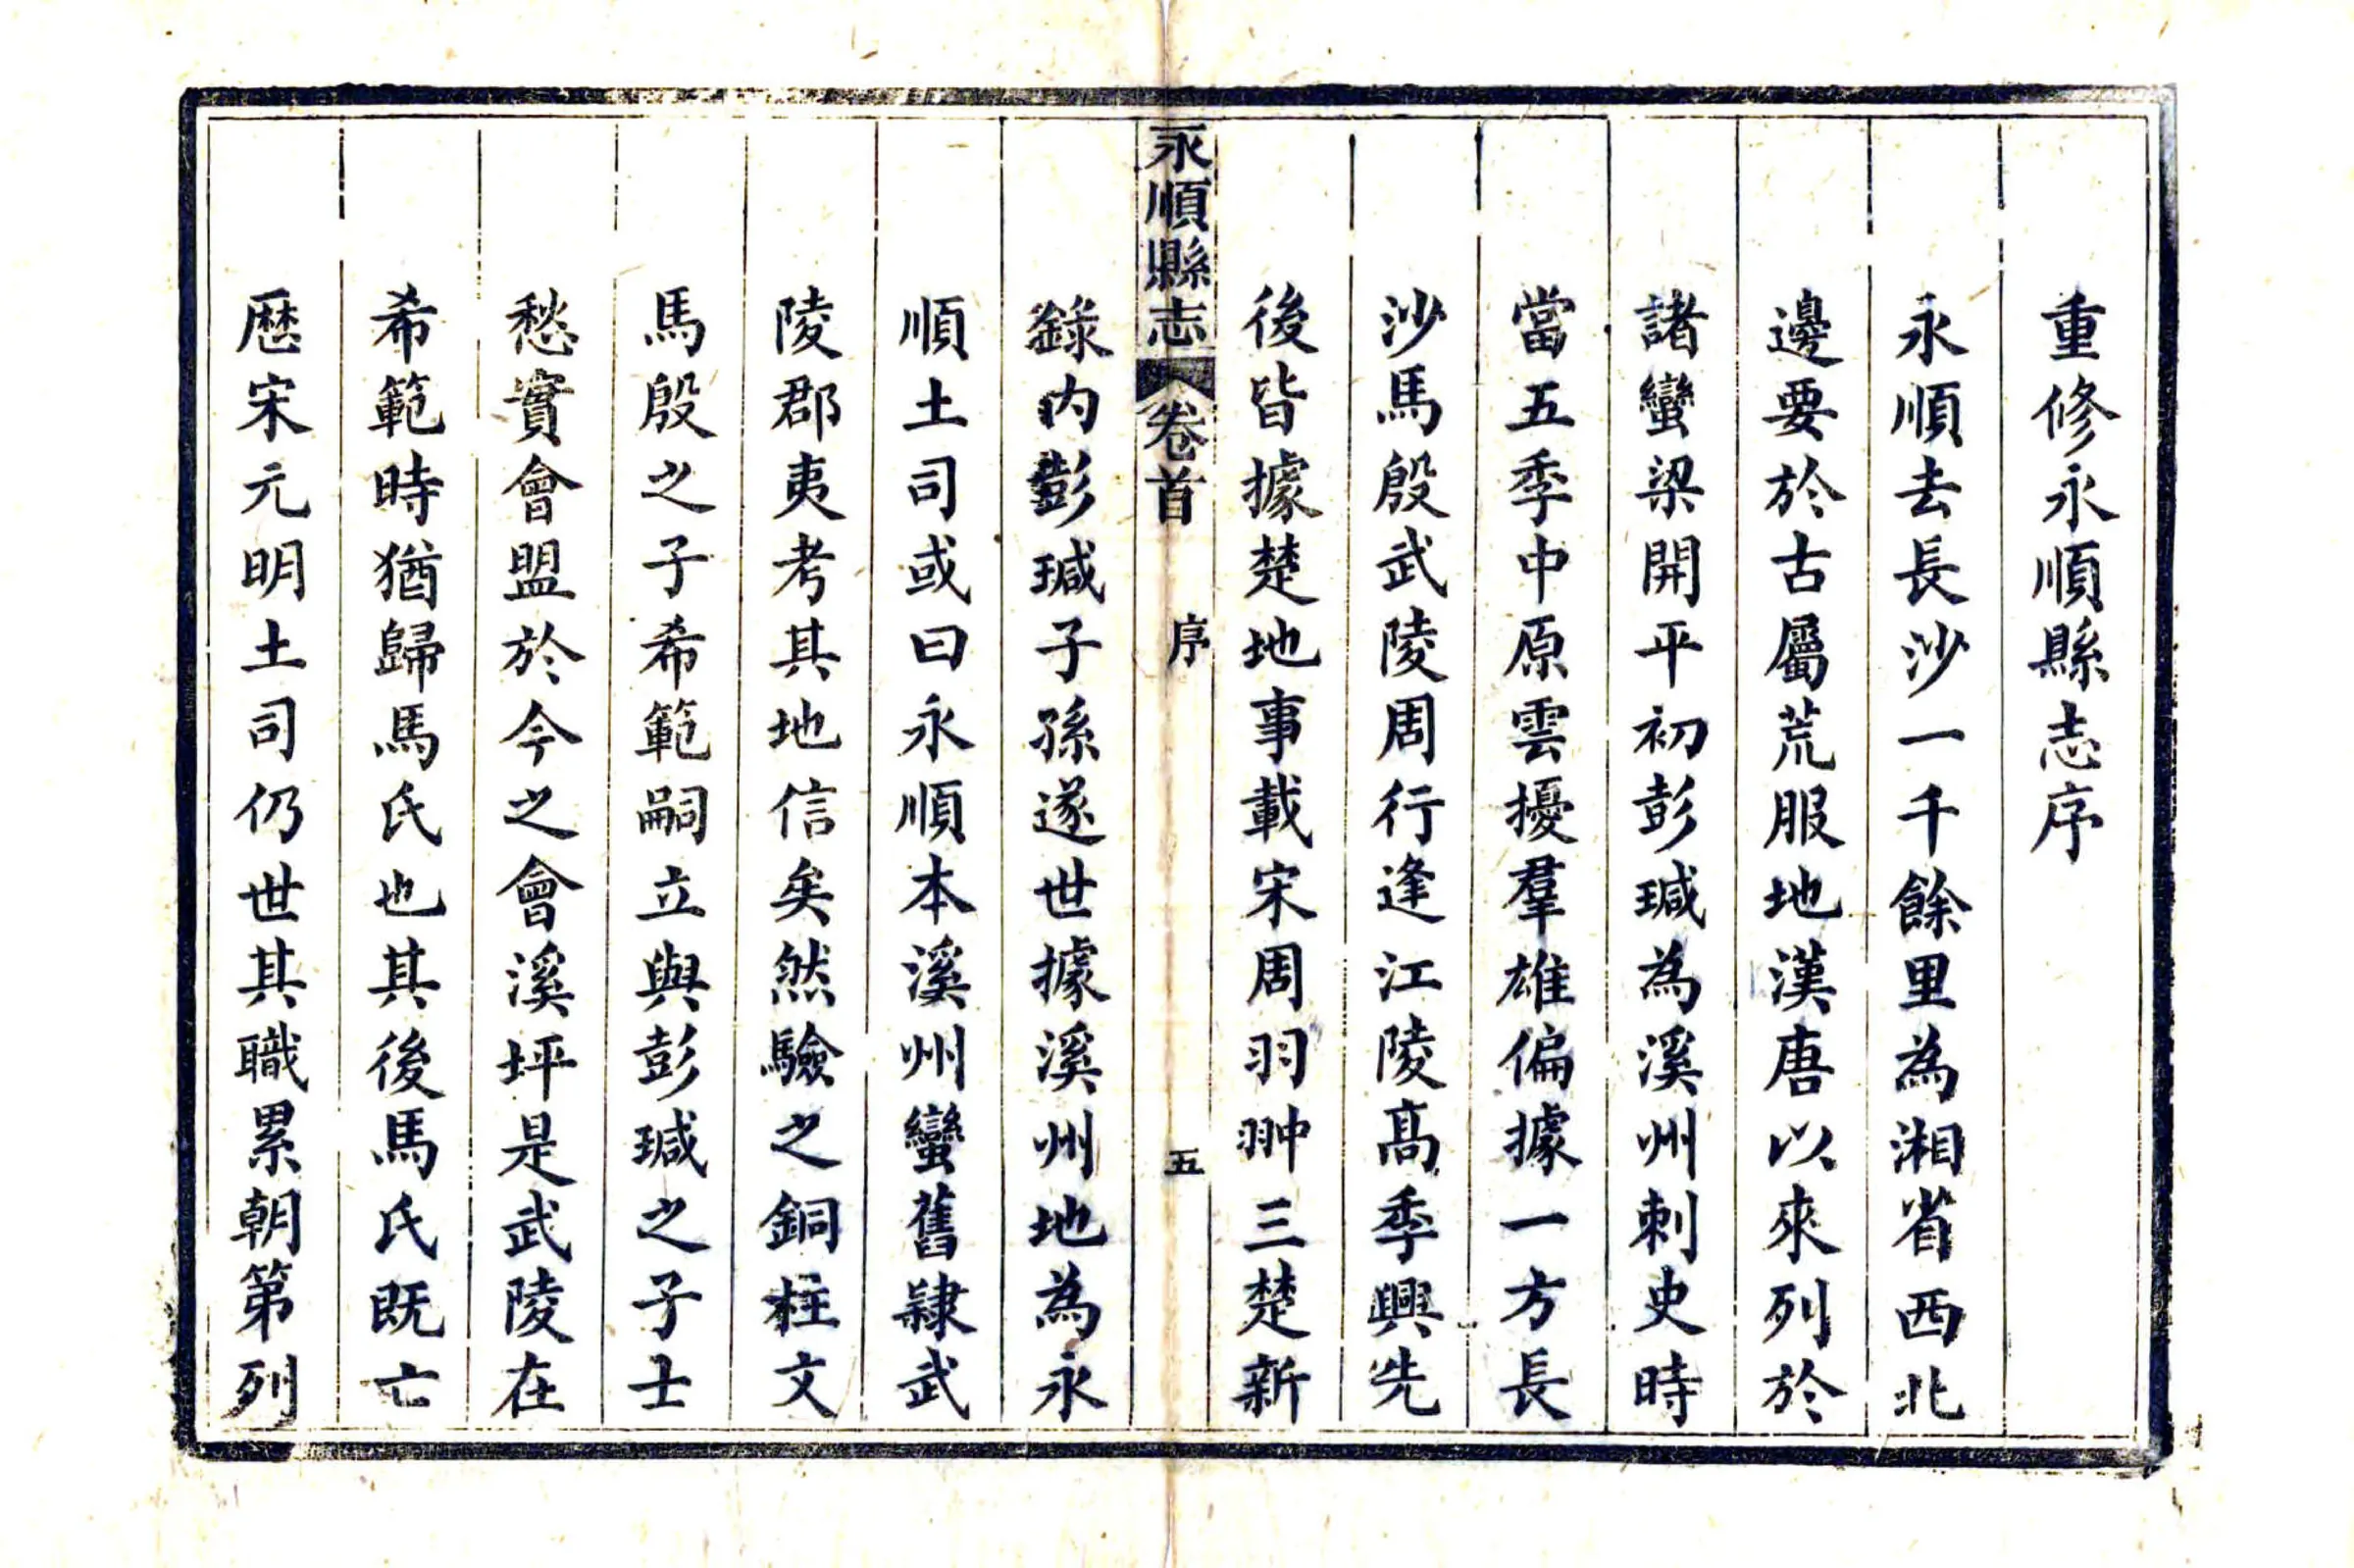 重修永順縣志序
永順去長沙一千餘里為湘省西北
邊要於古屬荒服地漢唐以來列於
諸蠻梁開平初彭瑊為溪州刺史時
當五季中原雲擾羣雄偏據一方長
沙馬殷武陵周行逢江陵高季興先
後皆據楚地事載宋周羽翀三楚新
永順縣志
卷首
序
五
錄内彭瑊子孫遂世據溪州地為永
順土司或曰永順本溪州蠻舊隸武
陵郡夷考其地信矣然驗之銅柱文
馬殷之子希範嗣立與彭瑊之子士
愁實會盟於今之會溪坪是武陵在
希範時猶歸馬氏也其後馬氏既亡
歷宋元明土司仍世其職累朝第列